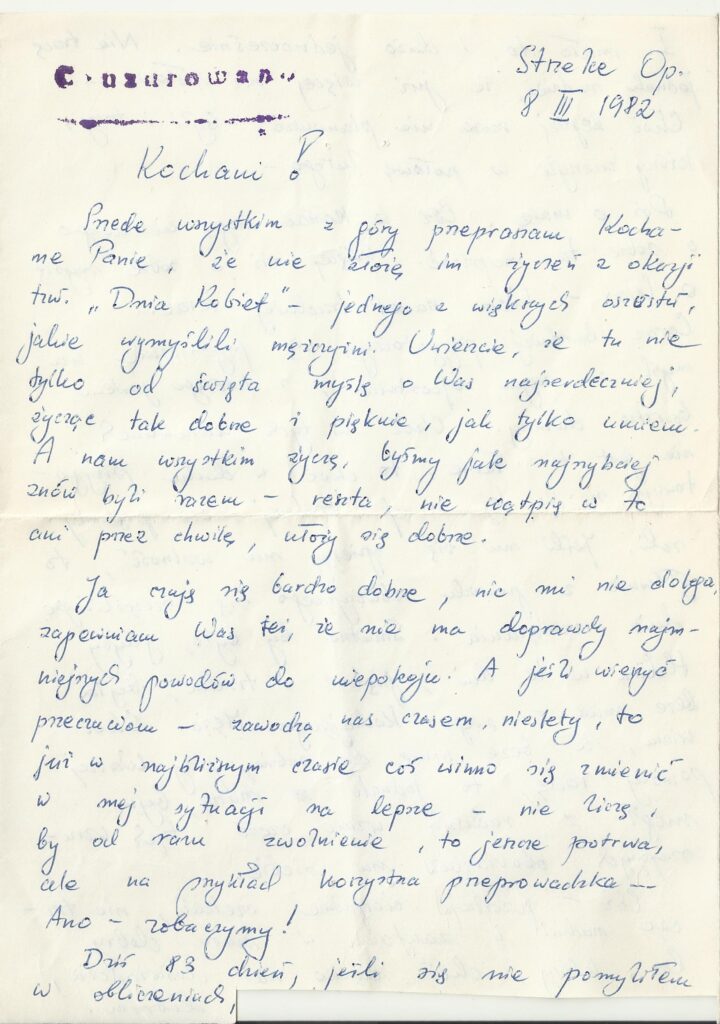 Cenzurowano
Strzelce Op.
8 III 1982
Kochani!
Przede wszystkim z góry przepraszam Kocha-
ne Panie, że nie złożę im życzeń z okazji
tzw. „Dnia Kobiet" – jednego z większych oszustw,
jakie wymyślili mężczyźni. Uwierzcie, że tu nie
tylko od święta myślę o Was najserdeczniej,
życząc tak dobrze i pięknie, jak tylko umiem.
A nam wszystkim życzę, byśmy jak najszybciej
znów byli razem – reszta, nie wątpię w to
ani przez chwilę, ułoży się dobrze.
Ja czuję się bardzo dobrze, nic mi nie dolega,
zapewniam Was też, że nie ma doprawdy najm-
niejszych powodów do niepokoju. A jeśli wierzyć
przeczuciom – zawodzą nas czasem, niestety, to
już w najbliższym czasie coś winno się zmienić
w mej sytuacji na lepsze – nie liczę,
by od razu zwolnienie, to jeszcze potrwa,
ale na przykład korzystna przeprowadzka ---
Ano – zobaczymy!
Dziś 83 dzień, jeśli się nie pomyliłem
w obliczeniach,